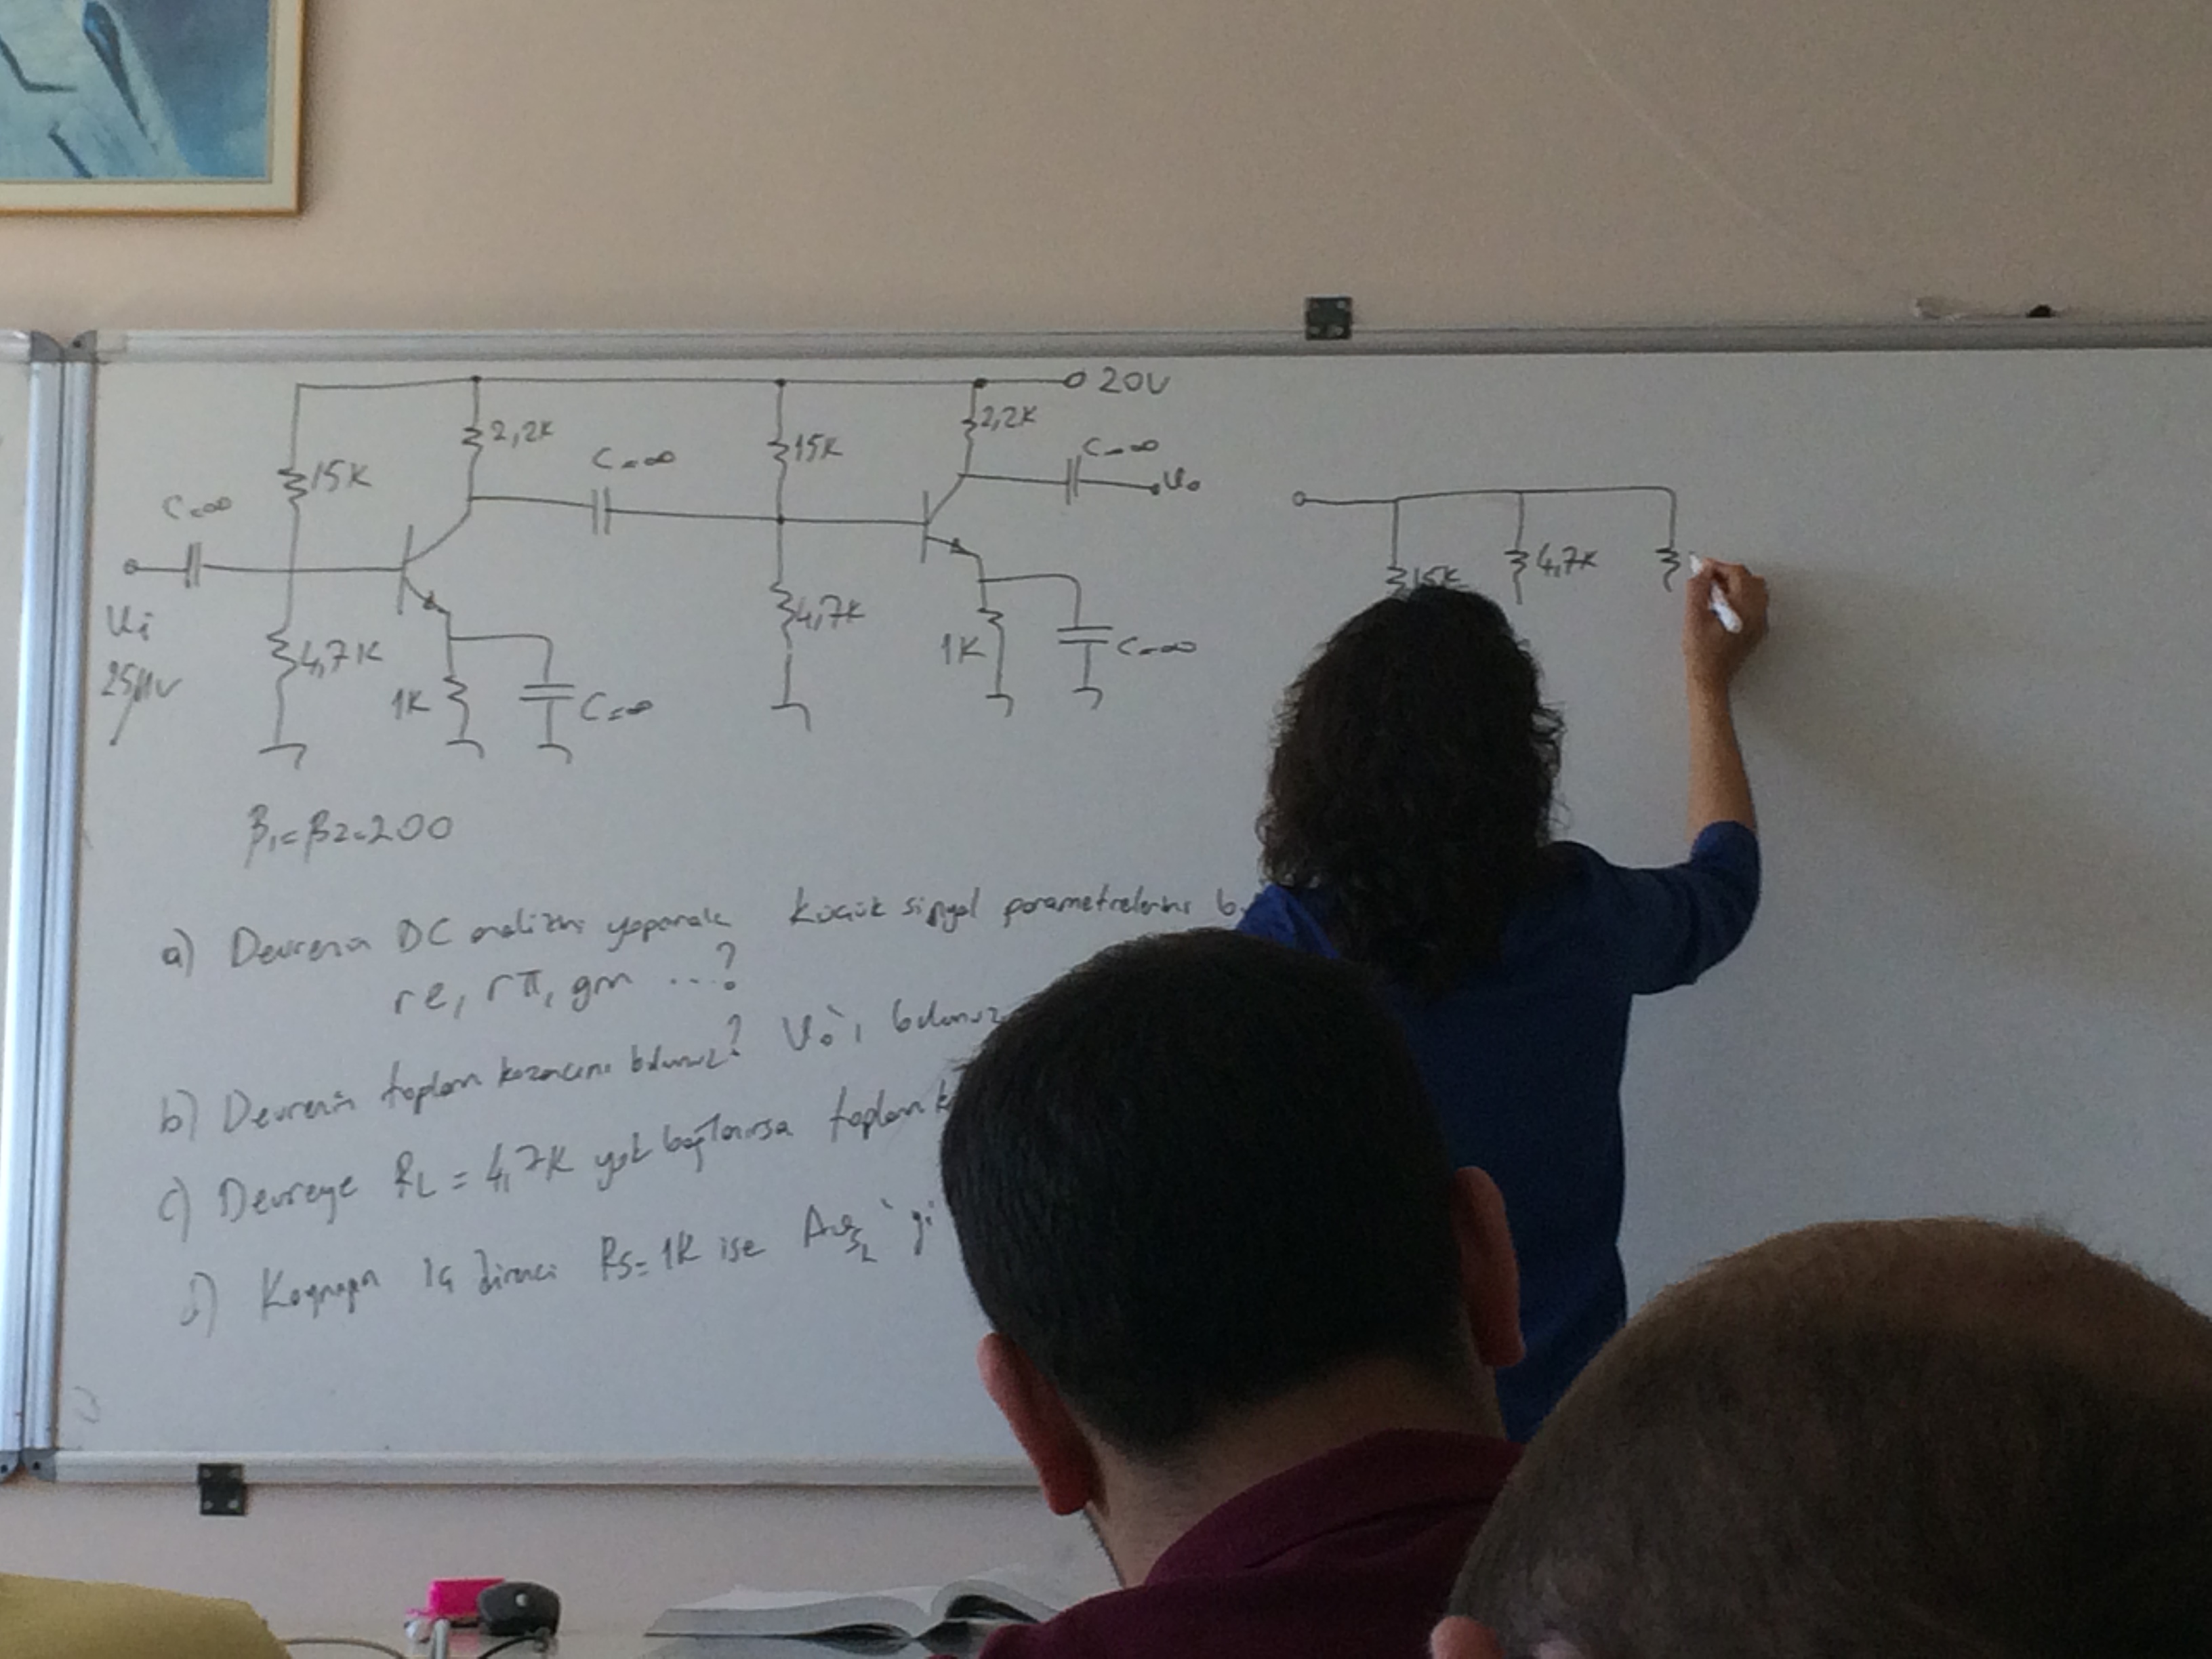 20V
2,2K
2,2K
C=∞
15K
C=∞
Vo
15K
C=∞
4,7K
15K
4,7K
1K
C=∞
Vi
25μV
4,7K
1K
C=∞
β1=β2=200
a) Devrenin DC analizini yaparak küçük sinyal parametrelerini
re, rπ, gm ...?
b) Devrenin toplam kazancını bulunuz? Vo'ı bulunuz
c) Devreye RL = 4,7K yük bağlanırsa toplam
d) Kaynağın iç direnci RS=1K ise